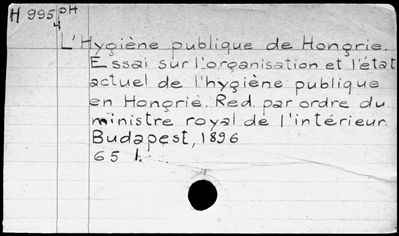 H 995 PH
4
L'Hygiène publique de Hongrie.
Essai sur l'organisation et l'état
actuel de l'hygiène publique
en Hongrie. Red. par ordre du
ministre royal de l'intérieur.
Budapest, 1896
65 l.